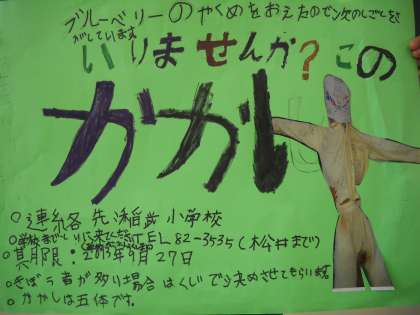 ブルーベリーのやくめをおえたので次のしごとを
がしています
いりませんか?この
かかし
○連絡先 稲武小学校
○学校まで
TEL 82-3535(松井まで)
○其月限:2013年9月27日
○きぼう者が多い場合はくじで決めさせてもらいます
○かかしは五体です。